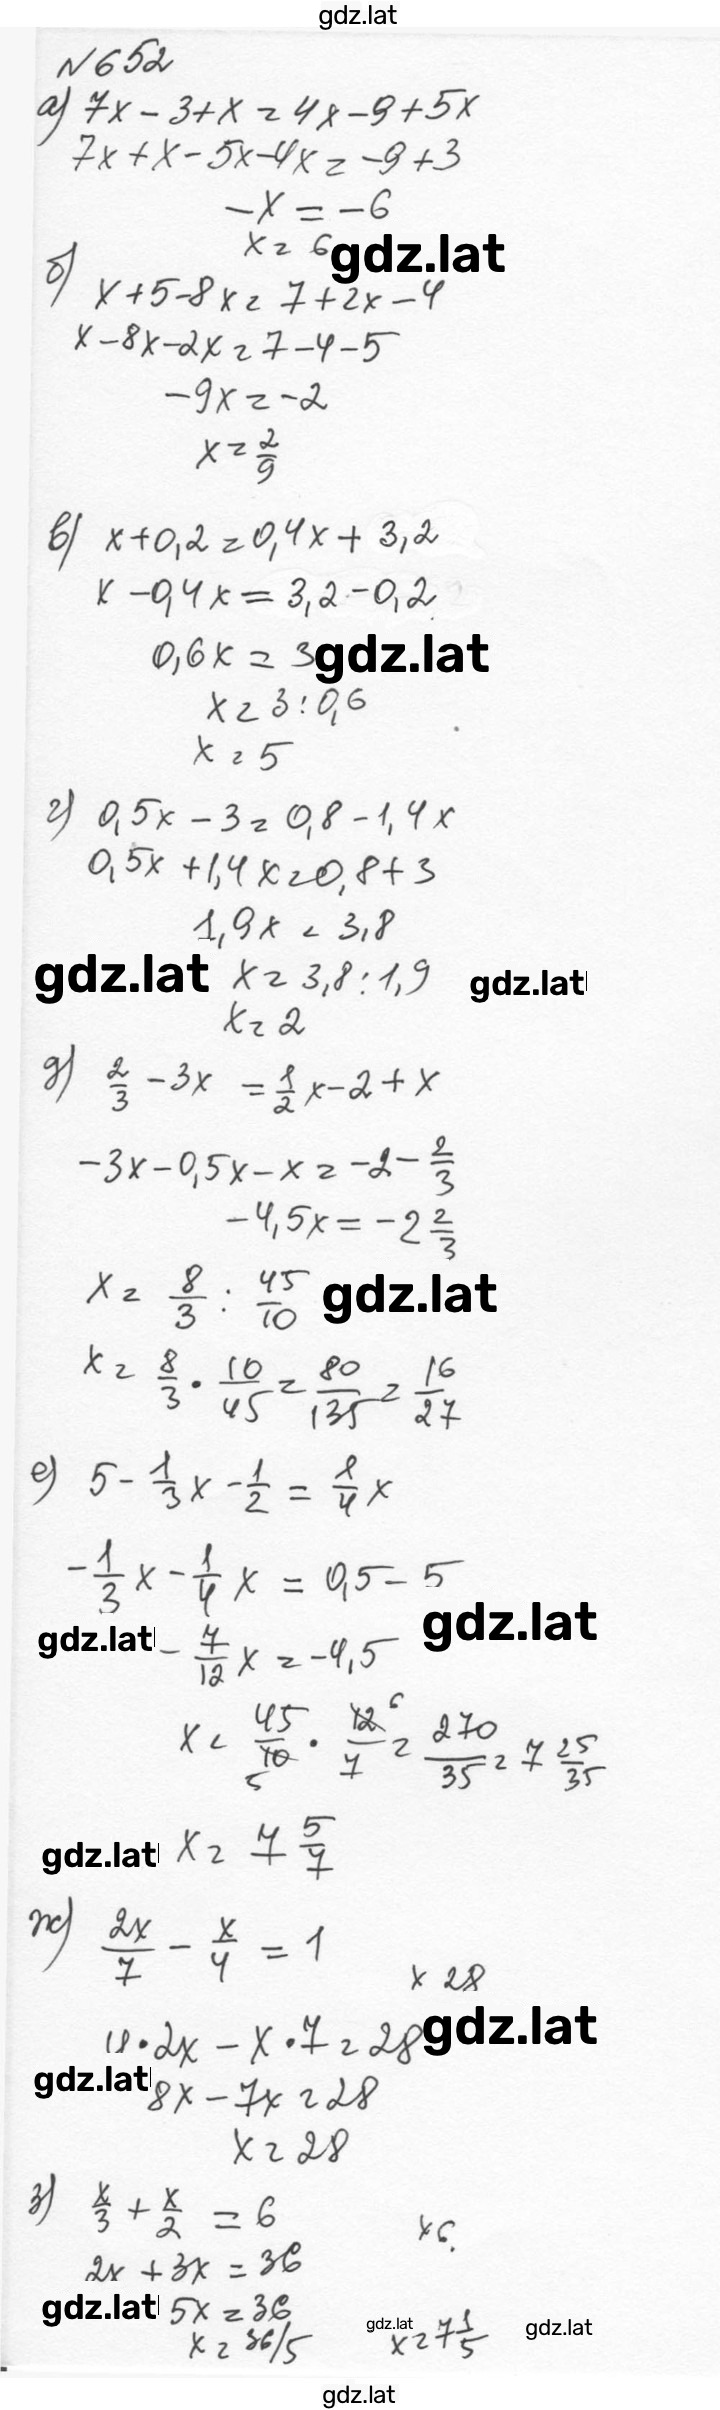 gdz.lat
№652
а) 7x - 3 + x = 4x - 9 + 5x
7x + x - 5x - 4x = -9 + 3
-x = -6
x = 6
gdz.lat
б) x + 5 - 8x = 7 + 2x - 4
x - 8x - 2x = 7 - 4 - 5
-9x = -2
x = 2/9
в) x + 0,2 = 0,4x + 3,2
x - 0,4x = 3,2 - 0,2
0,6x = 3
gdz.lat
x = 3 : 0,6
x = 5
г) 0,5x - 3 = 0,8 - 1,4x
0,5x + 1,4x = 0,8 + 3
1,9x = 3,8
gdz.lat x = 3,8 : 1,9 gdz.lat
x = 2
д) 2/3 - 3x = 1/2 x - 2 + x
-3x - 0,5x - x = -2 - 2/3
-4,5x = -2 2/3
x = 8/3 : 45/10 gdz.lat
x = 8/3 · 10/45 = 80/135 = 16/27
е) 5 - 1/3 x - 1/2 = 1/4 x
-1/3 x - 1/4 x = 0,5 - 5
gdz.lat
gdz.lat - 7/12 x = -4,5
x = 45/10 5 · 12/7 6 = 270/35 = 7 25/35
gdz.lat x = 7 5/7
ж) 2x/7 - x/4 = 1
x 28
4·2x - x·7 = 28 gdz.lat
gdz.lat 8x - 7x = 28
x = 28
з) x/3 + x/2 = 6
x 6.
2x + 3x = 36
gdz.lat 5x = 36
x = 36/5
gdz.lat
x = 7 1/5
gdz.lat
gdz.lat